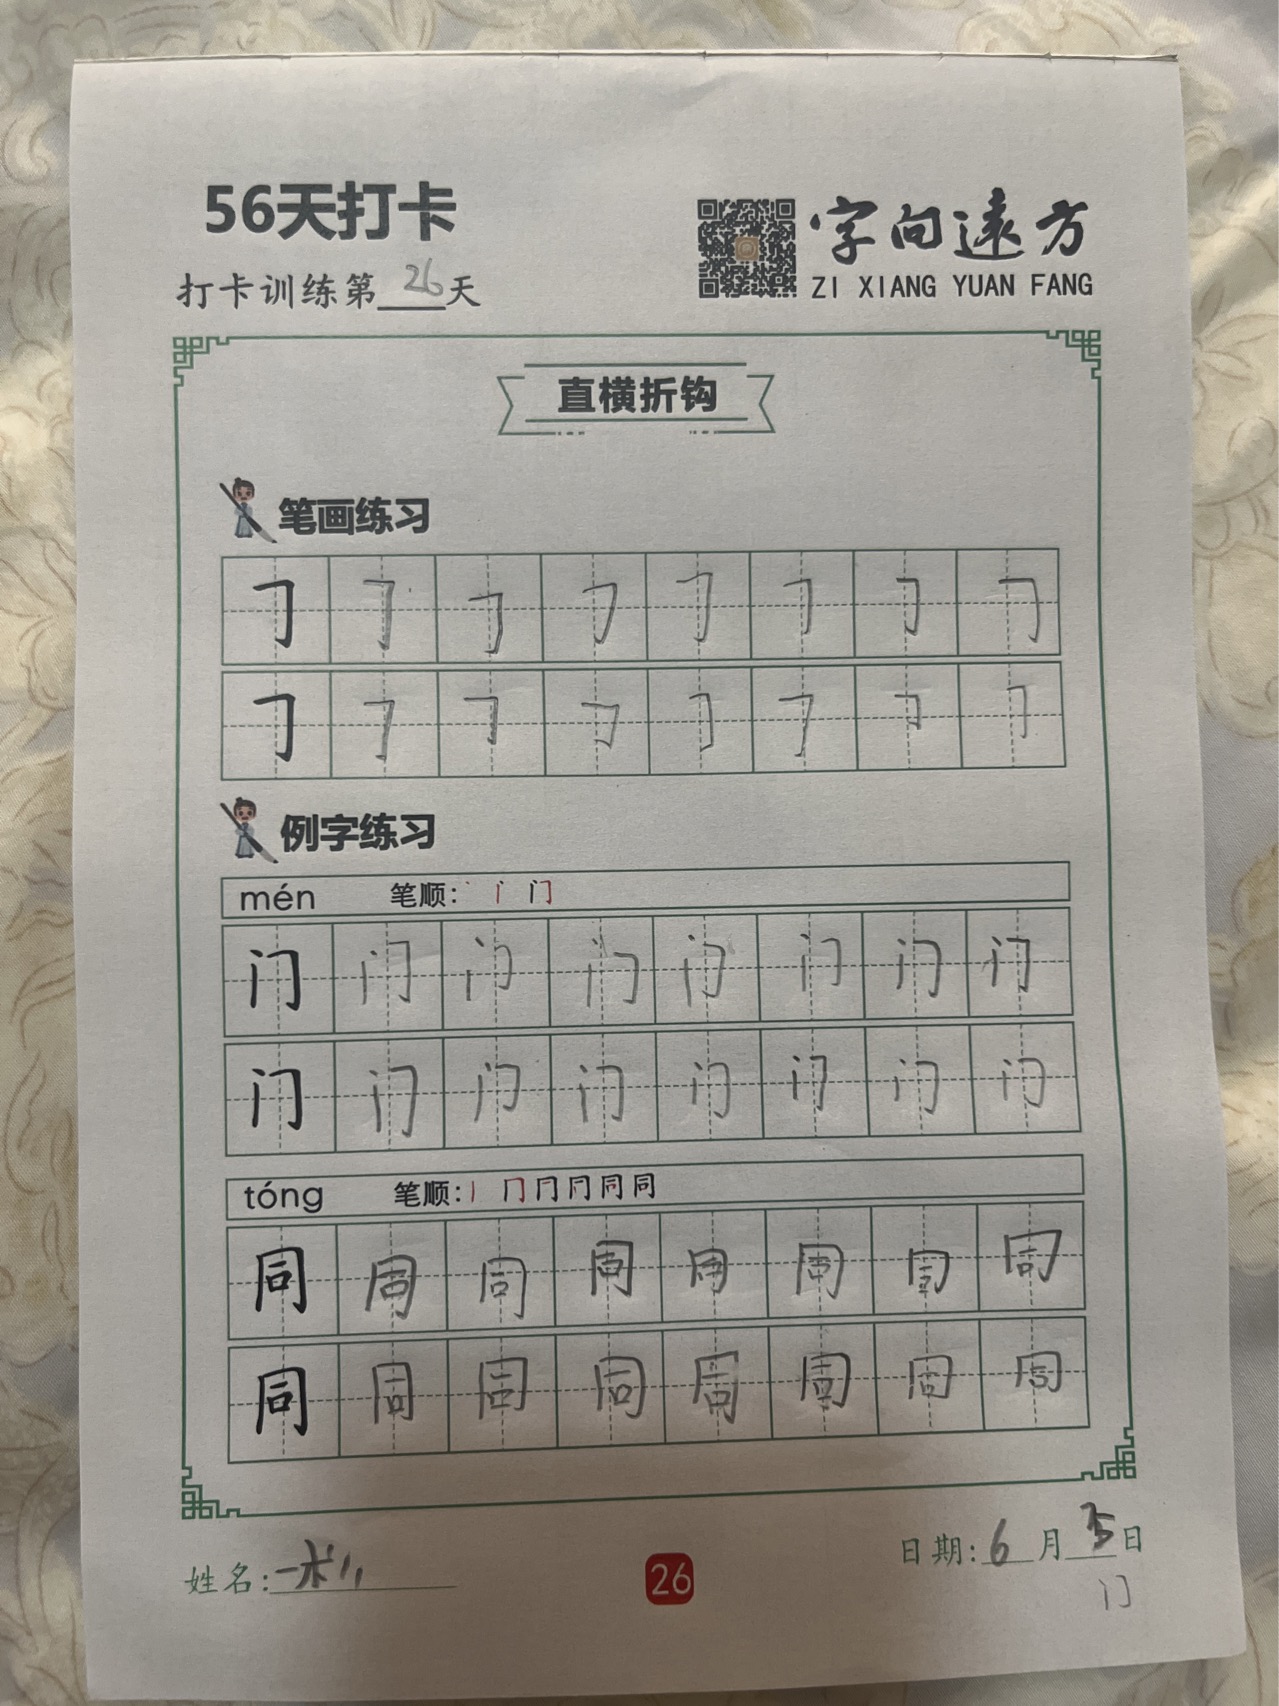 56天打卡
字向远方
打卡训练第26天
ZI XIANG YUAN FANG
直横折钩
笔画练习
㇆ ㇆ ㇆ ㇆ ㇆ ㇆ ㇆ ㇆
㇆ ㇆ ㇆ ㇆ ㇆ ㇆ ㇆ ㇆
例字练习
mén 笔顺: 丶 门
门 门 门 门 门 门 门 门
门 门 门 门 门 门 门 门
tóng 笔顺: 丨 冂 同
同 同 同 同 同 同 同 同
同 同 同 同 同 同 同 同
姓名:
26
日期: 6 月 日
门